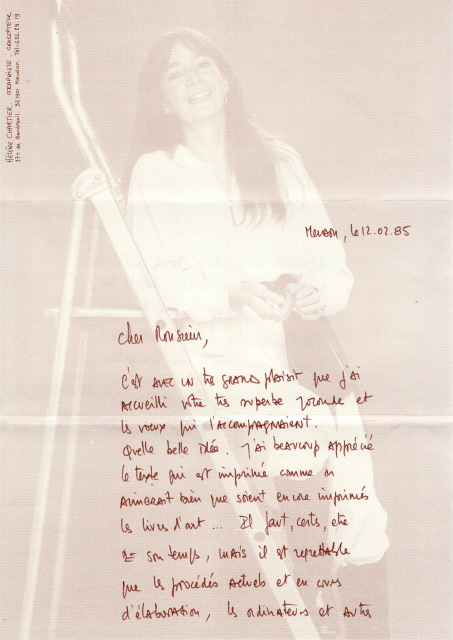 HÉLÈNE CHARTIER. GRAPHISTE. CONCEPTEUR
Meudon. Tél
Meudon, le 12.02.85
Cher Monsieur,
C'est avec un très grand plaisir que j'ai
accueilli votre très superbe Joconde et
les voeux qui l'accompagnaient.
Quelle belle idée. J'ai beaucoup apprécié
le texte qui est imprimé comme on
aimerait bien que soient encore imprimés
les livres d'art ... Il faut, certes, être
de son temps, mais il est regrettable
que les procédés actuels et en cours
d'élaboration, les ordinateurs et autres